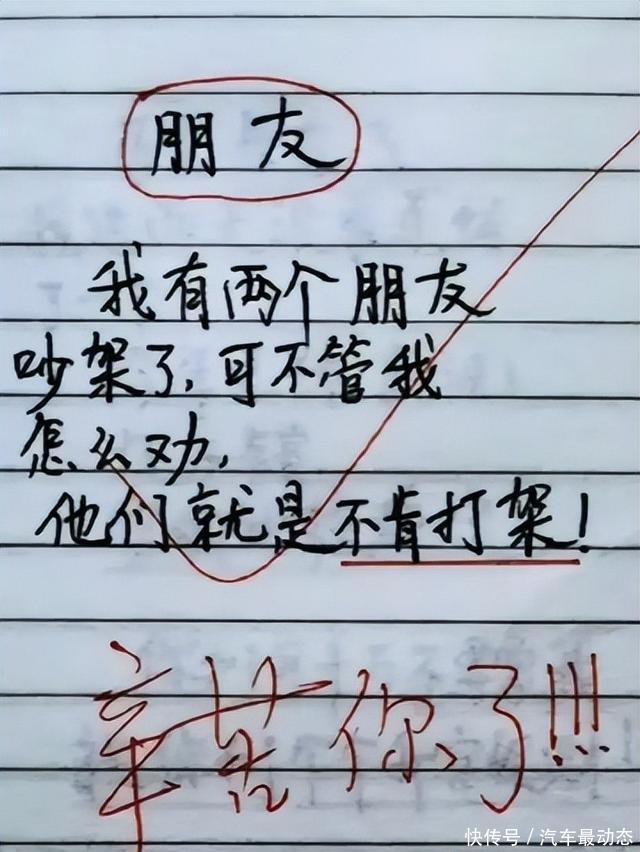 朋友
我有两个朋友
吵架了,可不管我
怎么劝,
他们就是不肯打架!
辛苦你了!!!
快传号/汽车最动态